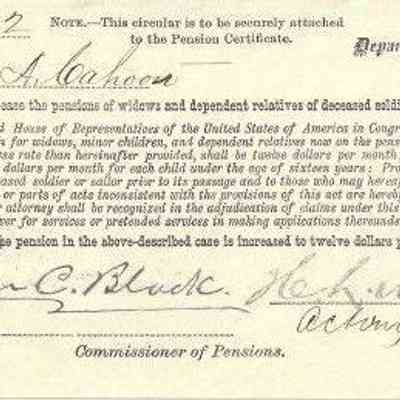 2 NOTE.—This circular is to be securely attached
to the Pension Certificate.
Depar
A. Cahoon
ease the pensions of widows and dependent relatives of deceased soldi
d House of Representatives of the United States of America in Congr
n for widows, minor children, and dependent relatives now on the pens
ess rate than hereinafter provided, shall be twelve dollars per month
dollars per month for each child under the age of sixteen years: Pro
eased soldier or sailor prior to its passage and to those who may herea
or parts of acts inconsistent with the provisions of this act are hereb
r attorney shall be recognized in the adjudication of claims under this
ver for services or pretended services in making applications thereunde
se pension in the above-described case is increased to twelve dollars p
C. Black.
Acting
Commissioner of Pensions.